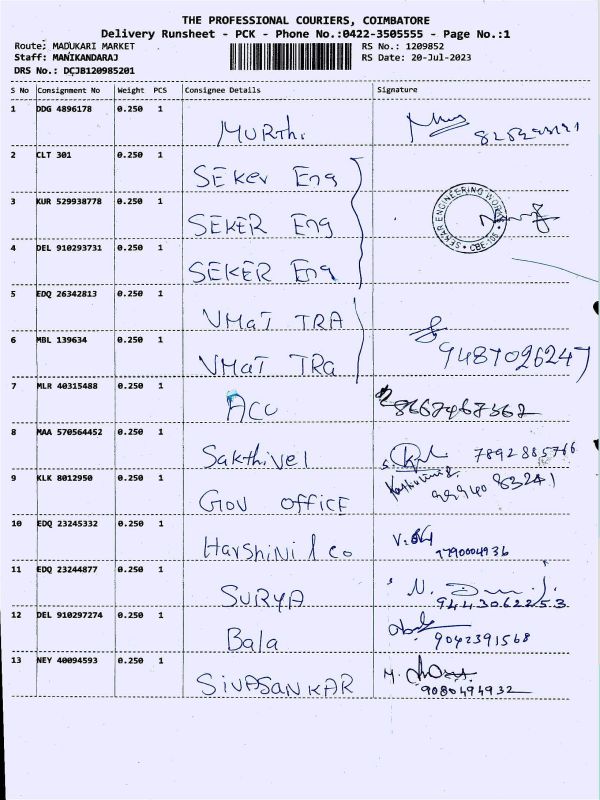 THE PROFESSIONAL COURIERS, COIMBATORE
Delivery Runsheet - PCK - Phone No.:0422-3505555 - Page No.:1
Route: MADUKARI MARKET RS No.: 1209852
Staff: MANIKANDARAJ RS Date: 20-Jul-2023
DRS No.: DCJB120985201
S No Consignment No Weight PCS Consignee Details Signature
1 DDG 4896178 0.250 1 MURThi
2 CLT 301 0.250 1 SEKer Eng
3 KUR 529938778 0.250 1 SEKER Eng
SEKAR ENGINEERING WORKS * CBE-106 *
4 DEL 910293731 0.250 1 SEKER Eng
5 EDQ 26342813 0.250 1 VMaT TRA
6 MBL 139634 0.250 1 VMaT TRa 9487026247
7 MLR 40315488 0.250 1 ACC 8667467362
8 MAA 570564452 0.250 1 Sakthivel 7892885766
9 KLK 8012950 0.250 1 Gov OFFICE 99940 83241
10 EDQ 23245332 0.250 1 Harshini & co 9790004936
11 EDQ 23244877 0.250 1 SURYA 9443062253
12 DEL 910297274 0.250 1 Bala 9042391568
13 NEY 40094593 0.250 1 SIVASANKAR 9080494932